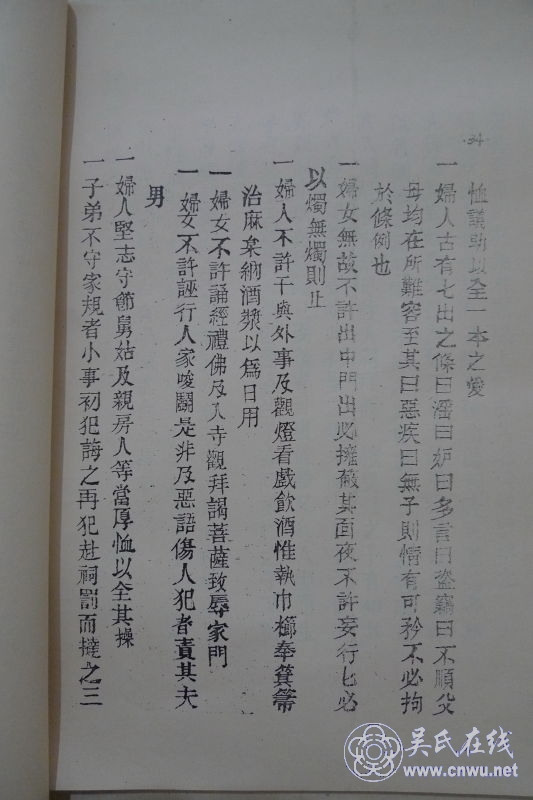 34
恤議助以全一本之愛
一 婦人古有七出之條曰淫曰妒曰多言曰盜竊曰不順父
母均在所難容至其曰惡疾曰無子則情有可矜不必拘
於條例也
一 婦女無故不許出中門出必擁蔽其面夜不許妄行乜必
以燭無燭則止
一 婦人不許干與外事及觀燈看戲飲酒惟執巾櫛奉箕箒
治麻枲納酒漿以爲日用
一 婦女不許誦經禮佛及入寺觀拜謁菩薩致辱家門
一 婦女不許誣行人家唆鬬是非及惡語傷人犯者責其夫
男
一 婦人堅志守節舅姑及親房人等當厚恤以全其操
一 子弟不守家規者小事初犯誨之再犯赴祠罰而撻之三
吴氏在线
www.cnwu.net